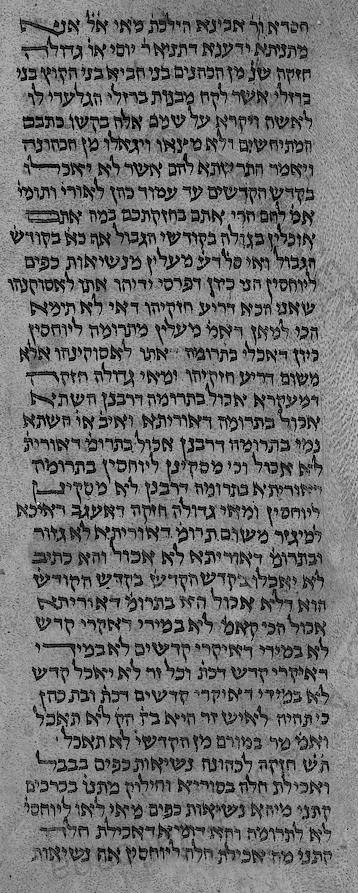 חסדא ור אבינא הילכת מאי אל אנא
מתניתא ידענא דתניא ר יוסי או גדולה
חזקה שנ מן הכהנים בני חביא בני הקוץ בני
ברזלי אשר לקח מבנות ברזלי הגלעדי לו
לאשה ויקרא על שמם אלה בקשו כתבם
המתיחשים ולא נימצאו ויגאלו מן הכהונה
ויאמר התרשתא להם אשר לא יאכלו
בקדש הקדשים עד עמוד כהן לאורי ותומי
אמ להם הרי אתם בחזקתכם במה אתם
אוכלין בגולה בקודשי הגבול אף כא בקודשי
הגבול ואי סל דע מעלין מנשיאות כפים
ליוחסין הני כיון דפרסי ידיהו אתו לאסוקינהו
שאני הכא דריע חזקיהו דאי לא תימא
הכי למאן דאמ מעלין מתרומה ליוחסין
כיון דאכלי בתרומה אתו לאסוקינהו אלא
משום דריע חזקיהו ומאי גדולה חזקה
דמעקרא אכול בתרומה דרבנן השתא
אכול בתרומה דאוריתא ואיב אי השתא
נמי בתרומה דרבנן אכול בתרומ דאורית
לא אכול וכי מסקינן ליוחסין בתרומה
דאוריתא בתרומה דרבנן לא מסקינן
ליוחסין ומאי גדולה חזקה דאעגב דאיכא
למיגזר משום תרומ דאוריתא לא גזור
ובתרומ דאוריתא לא אכול והא כתיב
לא יאכלו בקדש הקדש בקדש הקודש
הוא דלא אכול הא בתרומ דאוריתא
אכול הכי קאמ לא במידי דאקרי קדש
לא במידי דאיקרי קדשים לא במידי
דאיקרי קדש דכת וכל זר לא יאכל קדש
לא במידי דאיקרי קדשים דכת ובת כהן
כי תהיה לאיש זר היא בת הק לא תאכל
ואמ מר במורם מן הקדשי לא תאכל
תש חזקה לכהונה נשיאות כפים בבבל
ואכילת חלה בסוריא וחילוק מתנו בכרכים
קתני מיהא נשיאות כפים מאי לאו ליוחסי
לא לתרומה והא דומיא דאכילת חלה
קתני מה אכילת חלה ליוחסין אף נשיאות